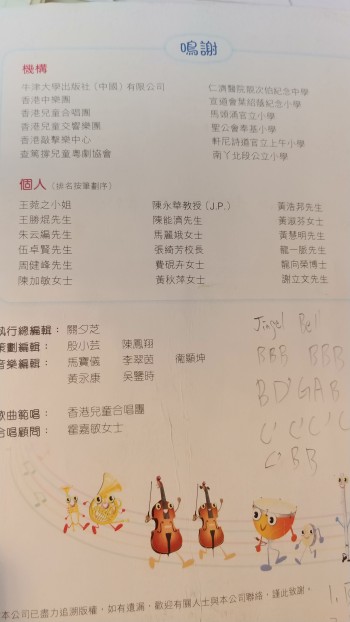 鳴謝
機構
牛津大學出版社（中國）有限公司
香港中樂團
香港兒童合唱團
香港兒童交響樂團
香港敲擊樂中心
查篤撐兒童粵劇協會
仁濟醫院靚次伯紀念中學
宣道會葉紹蔭紀念小學
馬頭涌官立小學
聖公會奉基小學
軒尼詩道官立上午小學
南丫北段公立小學
個人（排名按筆劃序）
王菀之小姐
王勝焜先生
朱云編先生
伍卓賢先生
周健峰先生
陳加敏女士
陳永華教授 (J.P.)
陳能濟先生
馬麗娥女士
張綺芳校長
費硯卉女士
黃秋萍女士
黃浩邦先生
黃淑芬女士
黃慧明先生
龍一脈先生
龍向榮博士
謝立文先生
執行總編輯： 關夕芝
策劃編輯： 殷小芸 陳鳳翔
音樂編輯： 馬寶儀 李翠茵 衛顯坤
黃永康 吳鑒時
歌曲範唱： 香港兒童合唱團
合唱顧問： 霍嘉敏女士
Jingel Bell
BBB BBB
BD'GAB
C' C' C' C'
C' BB
本公司已盡力追溯版權，如有遺漏，歡迎有關人士與本公司聯絡，謹此致謝。